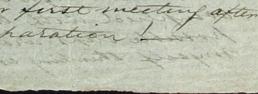 first meeting after
paration !